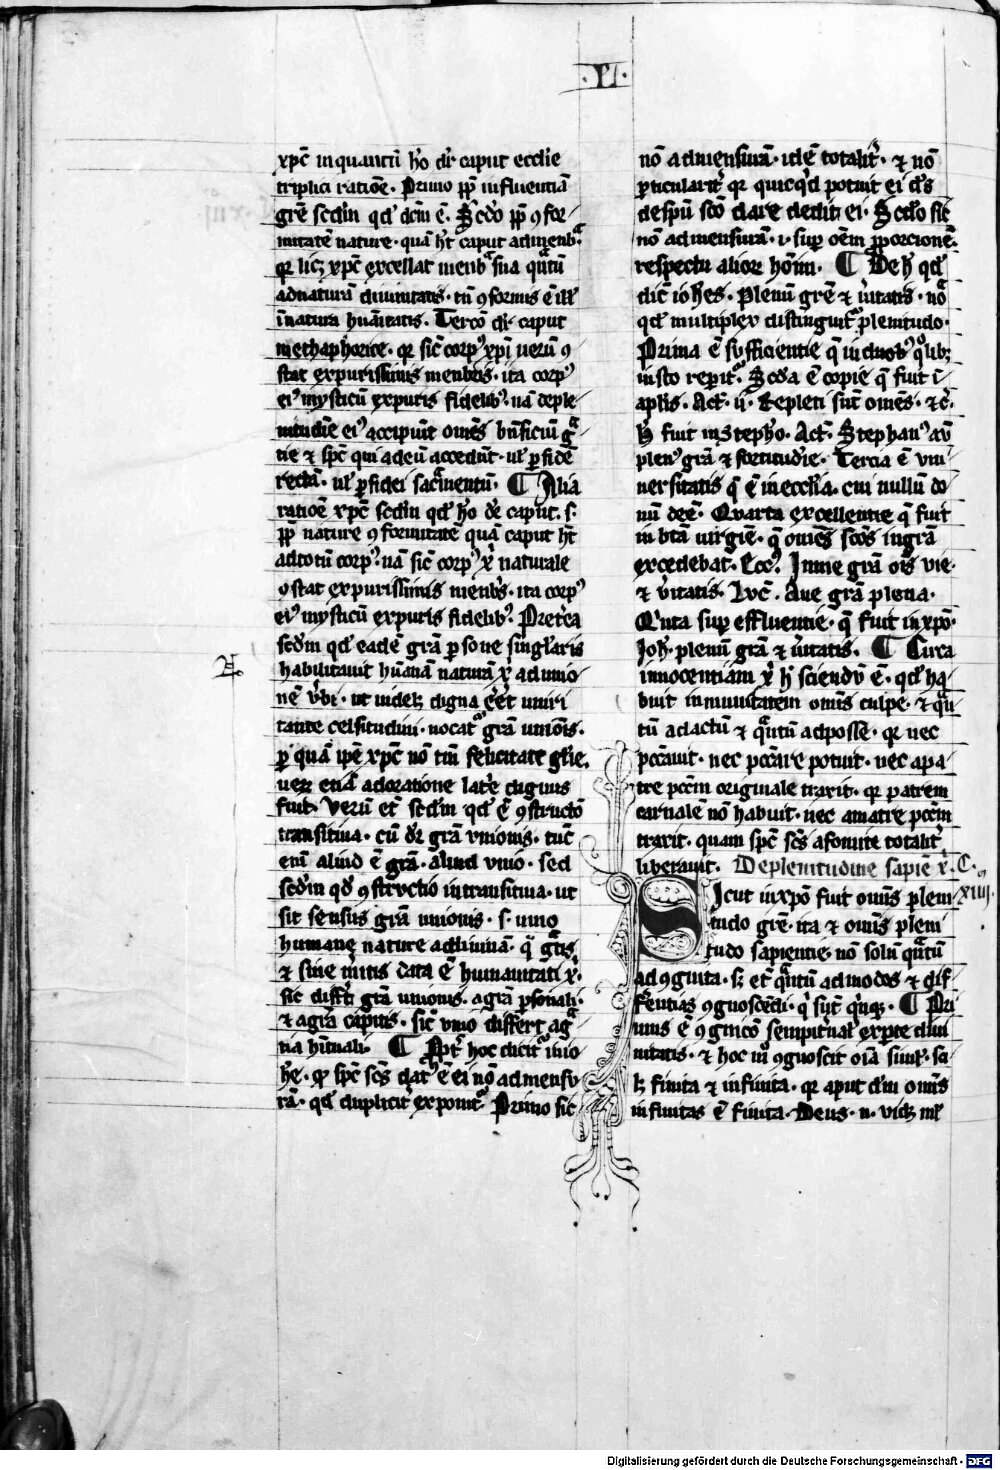 .VI.
xpc̄ in quantū hō dr̄ caput ecclīe
triplici ratiōe. Primo pp̄ influentiā
grē scdm̄ qd̓ dcm̄ ē. Scdō pp̄ ꝯfor-
mitatē nature. quā hꝫ caput ad menbᵃ.
qr̄ licꝫ xpc̄ excellat menbᵃ sua qᵃtū
ad naturā diuinitatis. tn̄ ꝯformis ē ill̓
ī natura huāitatis. Tercō dr̄ caput
methaphorice. qr̄ sic̄ corpꝰ xp̄i uerū ꝯ
stat ex purissimis menbris. ita corpꝰ
eiꝰ mysticū ex puris fidelibꝰ. nā de ple-
nitudīe eiꝰ accipiūt omēs bn̄ficiū gᵃ
tie ⁊ spc̄ qui ad eū accedūt. ul̓ ꝑ fidē
rectā. ul̓ ꝑ fidei sacᵃmentū. ¶ Alia
ratiōe xpc̄ scdm̄ qd̓ hō dr̄ caput. s.
pp̄ nature ꝯformitatē quā caput hꝫ
ad totū corpꝰ. nā sic̄ corpꝰ x̄ naturale
ꝯstat ex purissimis menbr̄s. ita corpꝰ
eiꝰ mysticū ex puris fidelibꝰ. Preterea
scdm̄ qd̓ eadē grā ꝑsone singl̓aris
habilitauit hūanā naturā x̄ ad unio
nē ūbi. ut uidelꝫ digna eēt uniri
tante celsitudini. uocatᵘ grā unionis.
ꝑ quā ip̄e xpc̄ nō tm̄ felicitate gl̓ie.
uerꝫ etiā adoratione latrie dignus
fuit. Verū et̄ scdm̄ qd̓ ē ꝯstructō
transitiua. cū dr̄ grā unionis. tūc
enī aliud ē grā. aliud vnio. sed
scdm̄ qd̓ ꝯstructio intransitiua. ut
sit sensus grā unionis. s. unio
humane nature ad diuinā. q̄ gᵃtis
⁊ sine meritis data ē humanitati x̄.
sic differt grā unionis. a grā ꝑsonali.
⁊ a grā capitis. sic̄ vnio differt a gᵃ
tia hitūali. ¶ Ppt̄ hoc dicit̄ in io
hē. qr̄ spc̄ scs̄ datꝰ ē ei nō ad mensu
rā. qd̓ duplicit̓ exponitᵘ. Primo sic
nō ad mensurā. idē totalit̓. ⁊ nō
ꝑticularit̓ qr̄ quicqͥd potuit ei d̓s
de spū scō dare dedit ei. Scdō sic
nō ad mensurā. i. sup̄ oēm ꝓporcionē.
respectu alioꝝ hoīm. ¶ De h̓ qd̓
dic̄ ioh̄es. Plenū grē ⁊ ūitatis. nōᵃ
qd̓ multiplex distinguitᵘ plenitudo.
Prima ē sufficientie q̄ in duobꝰ qͦlibꝫ
iusto repitᵘ. Scda ē copie q̄ fuit ī
aplis. Act̄. ii. Repleti sūt omēs. ⁊c̄.
h̓ fuit in stephō. Act̄. Stephanꝰ aū
plenꝰ grā ⁊ fortitudīe. Tercia ē vni-
uersitatis q̄ ē in ecclīa. cui nullū do
nū deē. Quarta excellentie q̄ fuit
in bt̄a uirgiē. q̄ omēs scōs in grā
excedebat. Ecc̓. In me grā oīs vie.
⁊ ūitatis. Luc̄. Aue grā plena.
Qͥnta sup̄ effluentie. q̄ fuit in xpō.
Joh̄. plenū grā ⁊ ūitatis. ¶ Circa
innocentiam x̄ h̓ sciendū ē. qd̓ ha-
buit immunitatem omīs culpe. ⁊ qᵃ
tū ad actū ⁊ qᵃtū ad posse. qr̄ nec
pccāuit. nec pccāre potuit. nec a pa-
tre pccm̄ originale traxit. qr̄ patrem
carnalē nō habuit. nec a matre pccm̄
traxit. quam spc̄ scs̄ a fomite totalit̓
liberauit. De plenitudine sapiē x̄. C.
XIIIJ.
Sicut in xpō fuit omīs pleni-
tudo grē. ita ⁊ omīs pleni
tudo sapientie. nō solū qᵃtū
ad ꝯgnita. sꝫ et̄ qᵃtū ad modos ⁊ dif-
ferentias ꝯgnoscēdi. qͥ sūt qͥnqꝫ. ¶ Pri
mus ē ꝯgnicō sempiternal̓ ex parte diui
nitatis. ⁊ hoc mō ꝯgnoscit oīa siml̓. sci-
lꝫ finita ⁊ infinita. qr̄ aput dm̄ omīs
infinitas ē finita. Deus. n. vidꝫ ml̓
Digitalisierung gefördert durch die Deutsche Forschungsgemeinschaft - DFG